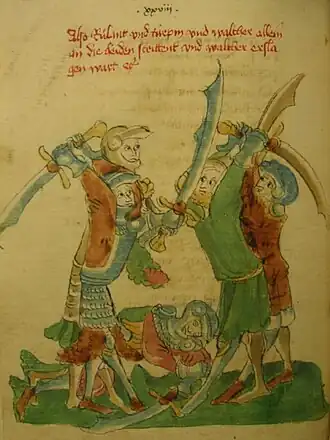 ·xxviii·
Also Růlant und turpin und walther allein
an die heiden streittent und walther ersla
gen wart